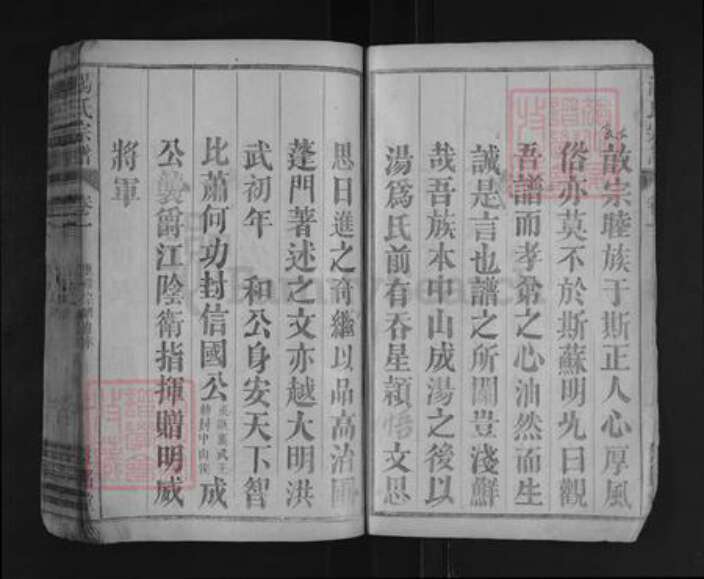 敬宗睦族于斯正人心厚風
俗亦莫不於斯蘇明允曰觀
吾譜而孝弟之心油然而生
誠是言也譜之所關豈淺鮮
哉吾族本中山成湯之後以
湯爲氏前有吞星穎悟文思
思日進之奇繼以品高治國
蓬門著述之文亦越大明洪
武初年 和公身安天下智
比蕭何功封信國公
成
公襲爵江陰衛指揮贈明威
將軍
湯氏宗譜 卷一